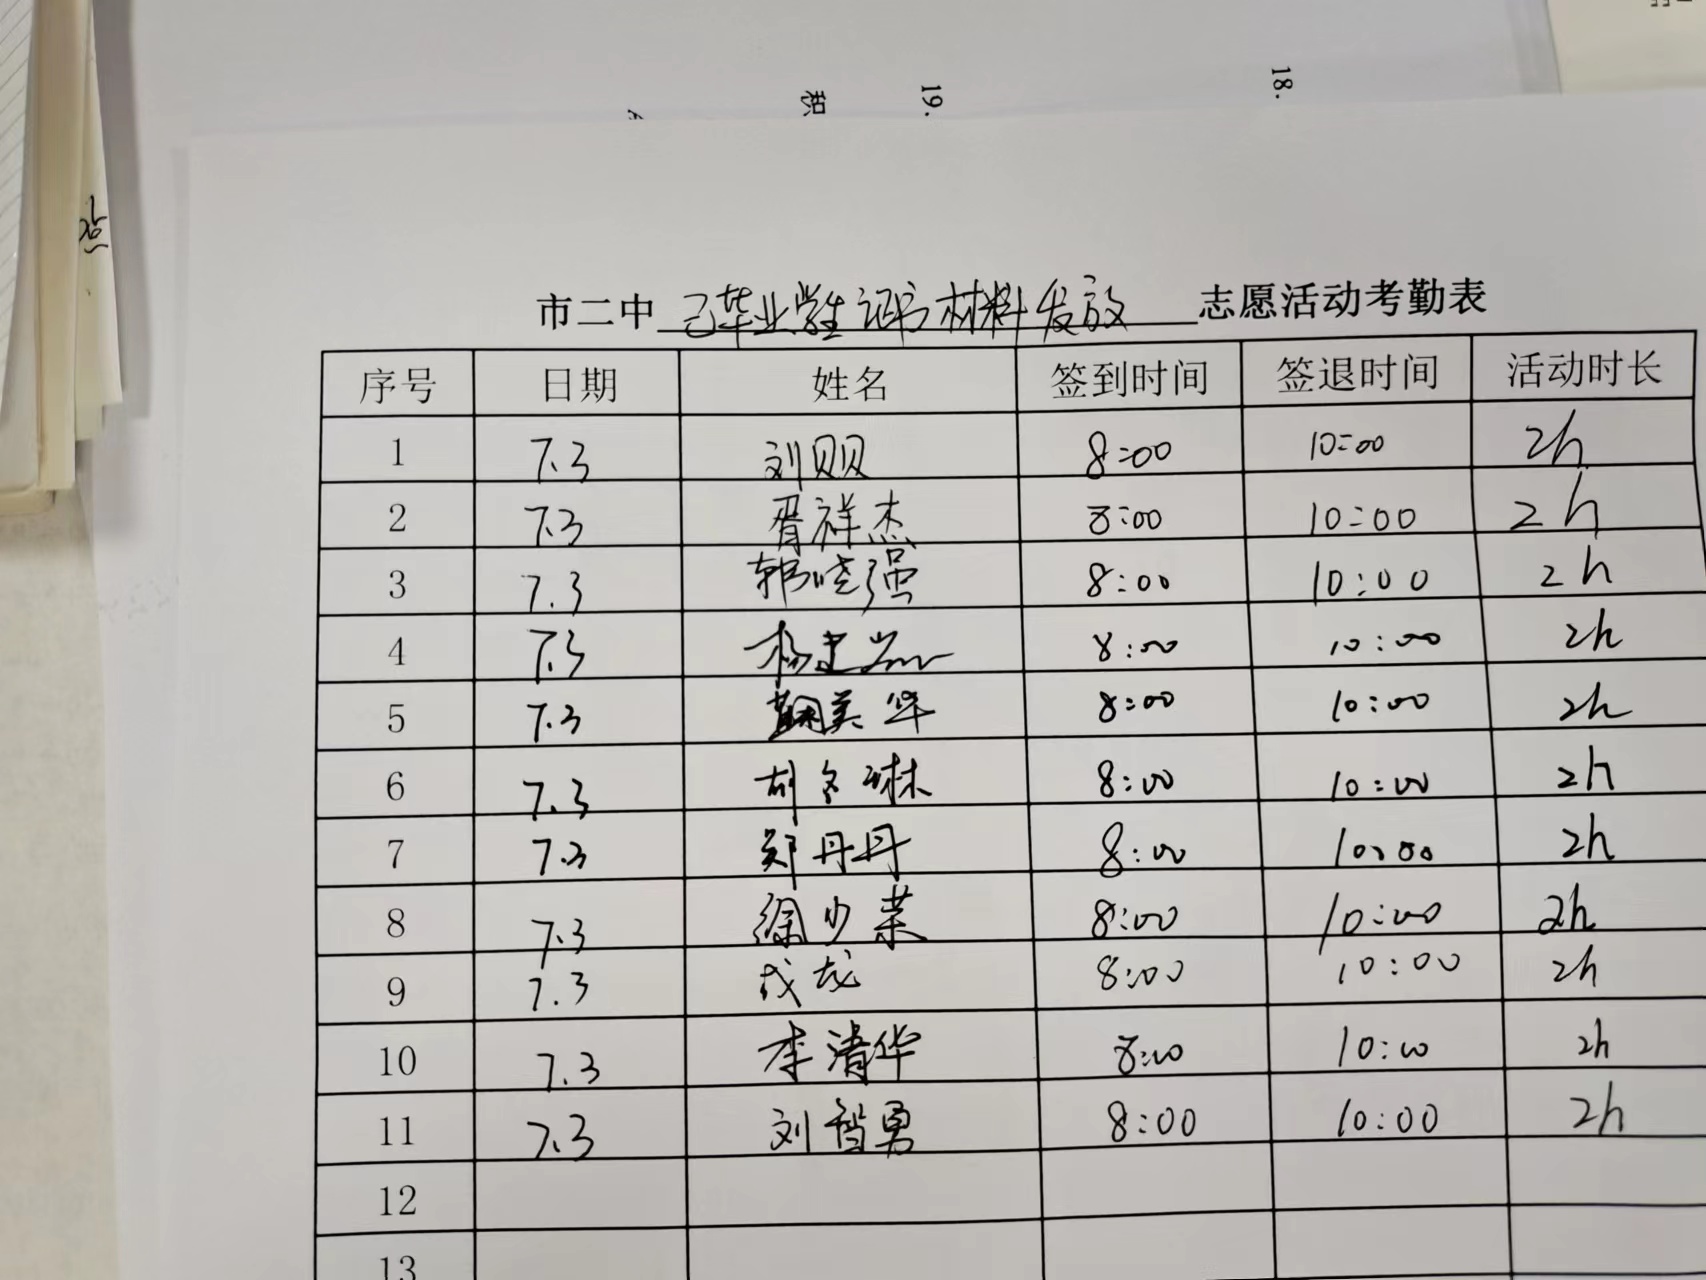 18.
19.
积
市二中 已毕业学生证书材料发放 志愿活动考勤表
序号 日期 姓名 签到时间 签退时间 活动时长
1 7.3 刘贝贝 8:00 10:00 2h
2 7.3 胥祥杰 8:00 10:00 2h
3 7.3 郭晓强 8:00 10:00 2h
4 7.3 杨建 8:00 10:00 2h
5 7.3 美华 8:00 10:00 2h
6 7.3 胡冬琳 8:00 10:00 2h
7 7.3 郑丹丹 8:00 10:00 2h
8 7.3 徐少荣 8:00 10:00 2h
9 7.3 戎龙 8:00 10:00 2h
10 7.3 李清华 8:00 10:00 2h
11 7.3 刘智勇 8:00 10:00 2h
12
13